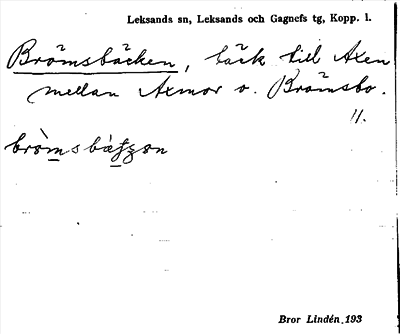 Leksands sn, Leksands och Gagnefs tg, Kopp. l.
Brömsbäcken, bäck till Axen
mellan Axmor o. Brömsbo.
11.
Bror Lindén. 193